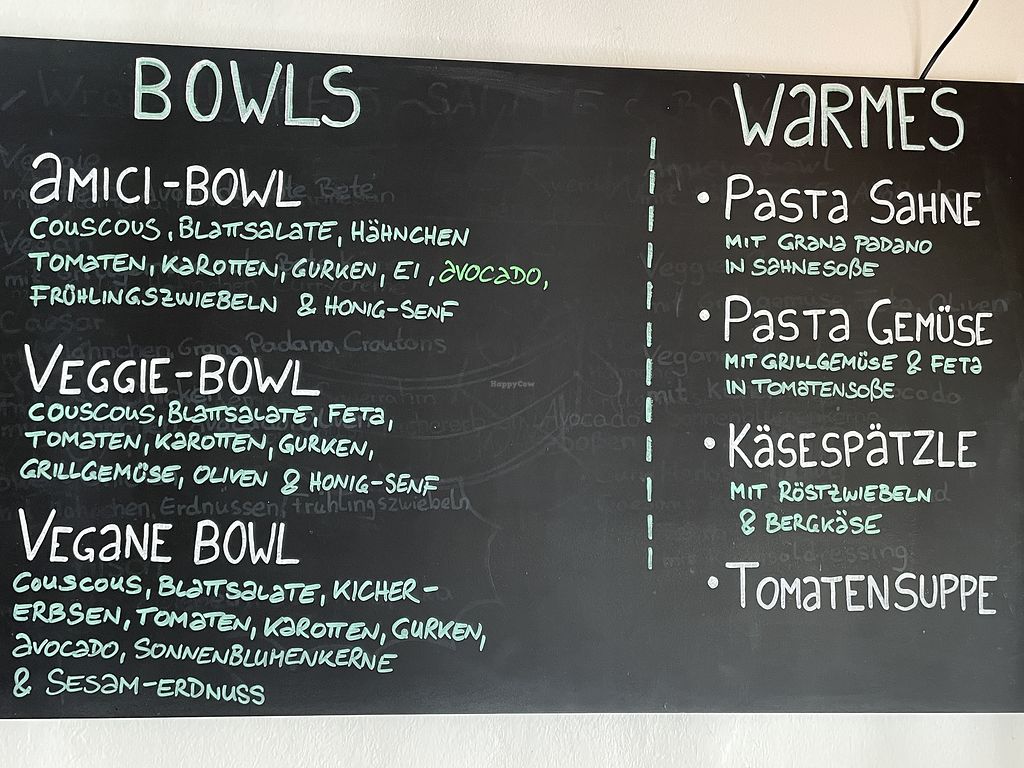 BOWLS
AMICI-BOWL
COUSCOUS, BLATTSALATE, HÄHNCHEN
TOMATEN, KAROTTEN, GURKEN, EI, AVOCADO,
FRÜHLINGSZWIEBELN & HONIG-SENF
VEGGIE-BOWL
COUSCOUS, BLATTSALATE, FETA,
TOMATEN, KAROTTEN, GURKEN,
GRILLGEMÜSE, OLIVEN & HONIG-SENF
VEGANE BOWL
COUSCOUS, BLATTSALATE, KICHER-
ERBSEN, TOMATEN, KAROTTEN, GURKEN,
AVOCADO, SONNENBLUMENKERNE
& SESAM-ERDNUSS
WARMES
• PASTA SAHNE
MIT GRANA PADANO
IN SAHNESOßE
• PASTA GEMÜSE
MIT GRILLGEMÜSE & FETA
IN TOMATENSOßE
• KÄSESPÄTZLE
MIT RÖSTZWIEBELN
& BERGKÄSE
• TOMATENSUPPE
HappyCow